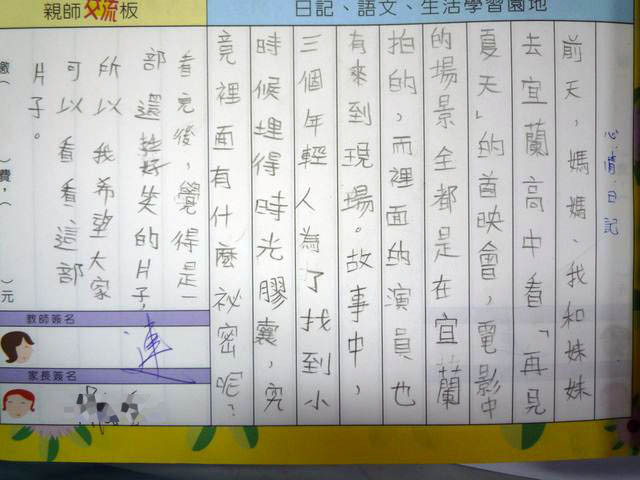 日記、語文、生活學習園地
親師交流板
心情日記
前天，媽媽、我和妹妹
去宜蘭高中看「再見
夏天」的首映會，電影中
的場景全都是在宜蘭
拍的，而裡面的演員也
有來到現場。故事中，
三個年輕人為了找到小
時候埋得時光膠囊，究
竟裡面有什麼祕密呢？
看完後，覺得是一
部還挺好笑的片子，
所以我希望大家
可以看看這部
片子。
繳（ ）費，（ ）元
教師簽名
連
家長簽名